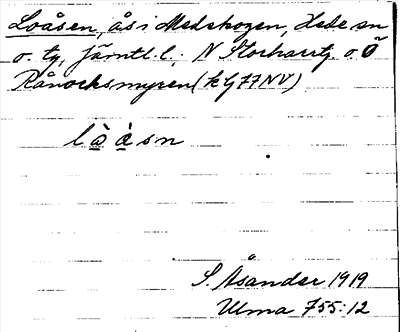 Loåsen, ås i Medskogen, Hede sn
o. tg, Jämtl. l.; N Storharrtj. o. Ö
Rånocksmyren (k G 77 NV)
lò å̀ sn
S. Åsander 1919
Ulma 755:12